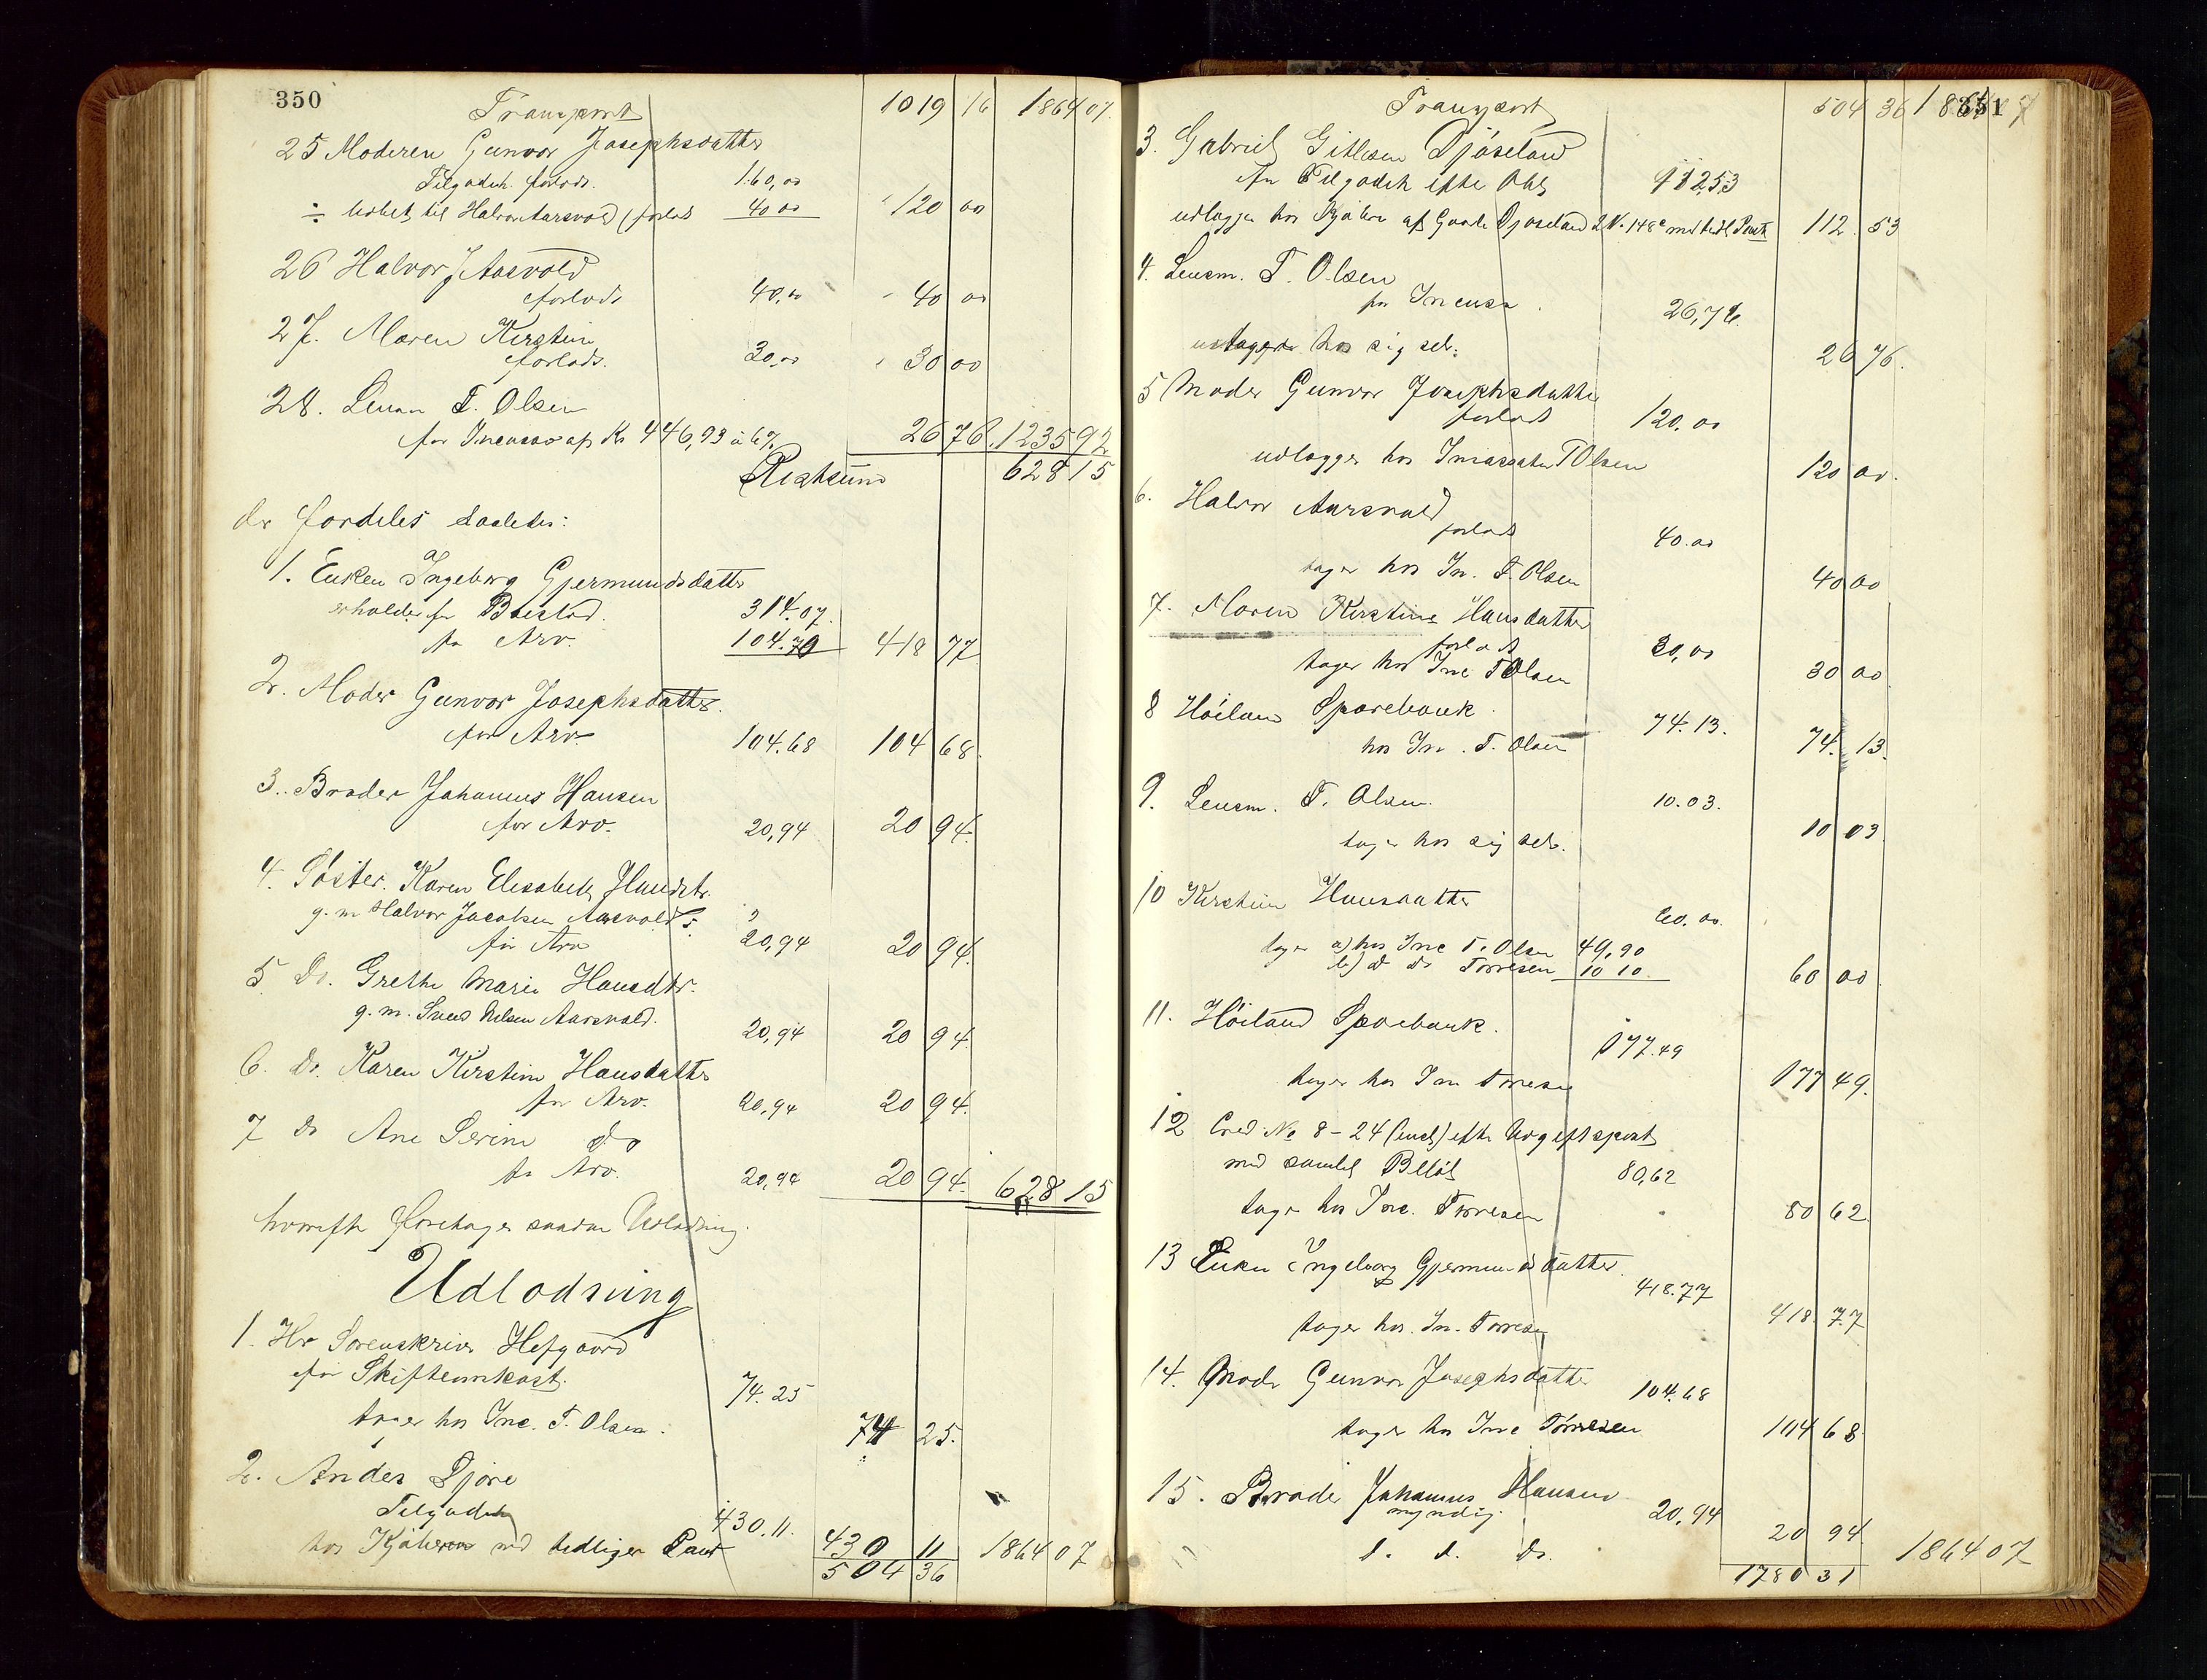 350
Transport 1019 16 1864 07
25 Moderen Gunvor Josephsdatter
Tilgodeh. forlods. 160,00
÷ Udbet. til Halvor Aarsvold (forlods 40 00 120 00
26 Halvor J Aarsvold
forlods 40,00 40 00
27. Maren Kirstine
forlods. 30,00 30 00
28. Lensm T. Olsen
for Incasso af Kr 446,93 à 6% 26 76. 1235 92
Restsum 628 15
der fordeles saaledes:
1. Enken Ingeborg Gjermundsdatter
erholder for Boeslod. 314.07.
for Arv. 104.70 418 77
2. Moder Gunvor Josephsdatter.
for Arv 104.68 104 68.
3. Broder Johannes Hansen
for Arv. 20,94 20 94.
4. Søster. Karen Elisabeth Hansdtr.
g. m Halvor Jacobsen Aarsvold.
for Arv 20,94 20 94.
5 Do. Grethe Marie Hansdtr.
g. m. Svend Nilsen Aarsvold. 20,94 20 94.
6. do. Karen Kirstine Hansdatter
for Arv. 20,94 20 94.
7 do Ane Serine do
for Arv. 20,94 20 94. 628 15
hvorefter foretages saadan Udlodning.
Udlodning
1. Hr Sorenskriver Hefgaard
for Skifteomkost. 74.25
tager hos Inc. T. Olsen. 74 25.
2. Anders Djøre
Tilgodeh 430.11.
hos Kjøberen med tedligere Pant 430 11 1864 07
504 36
351
Transport 504 36 1864 07
3. Gabriel Gitlesen Djøseland
for Tilgodeh efter Obl 112,53
udlægges hos Kjøber af Gaarde Djøseland L.N. 148c med tedl Pant 112. 53
4. Lensm. T. Olsen
for Incasso. 26,76.
udlægges hos sig selv. 26 76.
5 Moder Gunvor Josephsdatter
forlods 120.00
udlægges hos Incassator T Olsen 120 00.
6. Halvor Aarsvold
forlods 40.00
tager hos In. T. Olsen 40 00
7. Maren Kirstine Hansdatter
forlods 30,00
tager hos Inc T Olsen 30 00
8 Høiland Sparebank 74.13.
hos In. T. Olsen 74. 13.
9. Lensm. T. Olsen. 10.03.
tager hos sig selv. 10 03
10 Kirstine Hansdatter 60.00.
tager a) hos Inc T. Olsen 49,90
b) d do Torresen 10 10 60 00
11. Høiland Sparebank. 177.49
tager hos Inc Torresen 177 49.
12 Cred. No 8 - 24 (incl) efter Udgiftspost
med samlet Beløb 80,62
tager hos Inc. Torresen 80 62
13 Enken Ingeborg Gjermundsdatter 418.77
tager hos. In. Torresen 418 77
14. Moder Gunvor Josephsdatter 104.68
tager hos Inc Torresen 104 68
15. Broder Johannes Hansen
myndig. 20,94
d. d. do. 20 94. 1864 07
1780 31